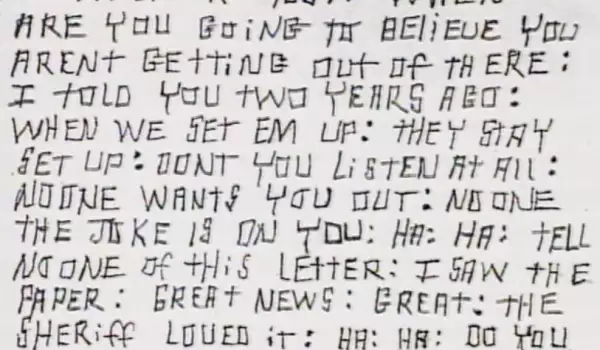 ARE YOU GOiNG TO BELiEVE YOU
ARENt GEttiNG OUt Of tHERE:
I tOLD YOU tWO YEARS AGO:
WHEN WE SEt EM UP: tHEY StAY
SEt UP: DONT YOU LiStEN At All:
NOONE WANtS YOU OUT: NO ONE
tHE JOKE IS ON YOU: HA: HA: tELL
NO ONE Of tHiS LETTER: I SAW tHE
PAPER: GREAt NEWS: GREAt: tHE
SHERiff LOVED it: HA: HA: DO YOU